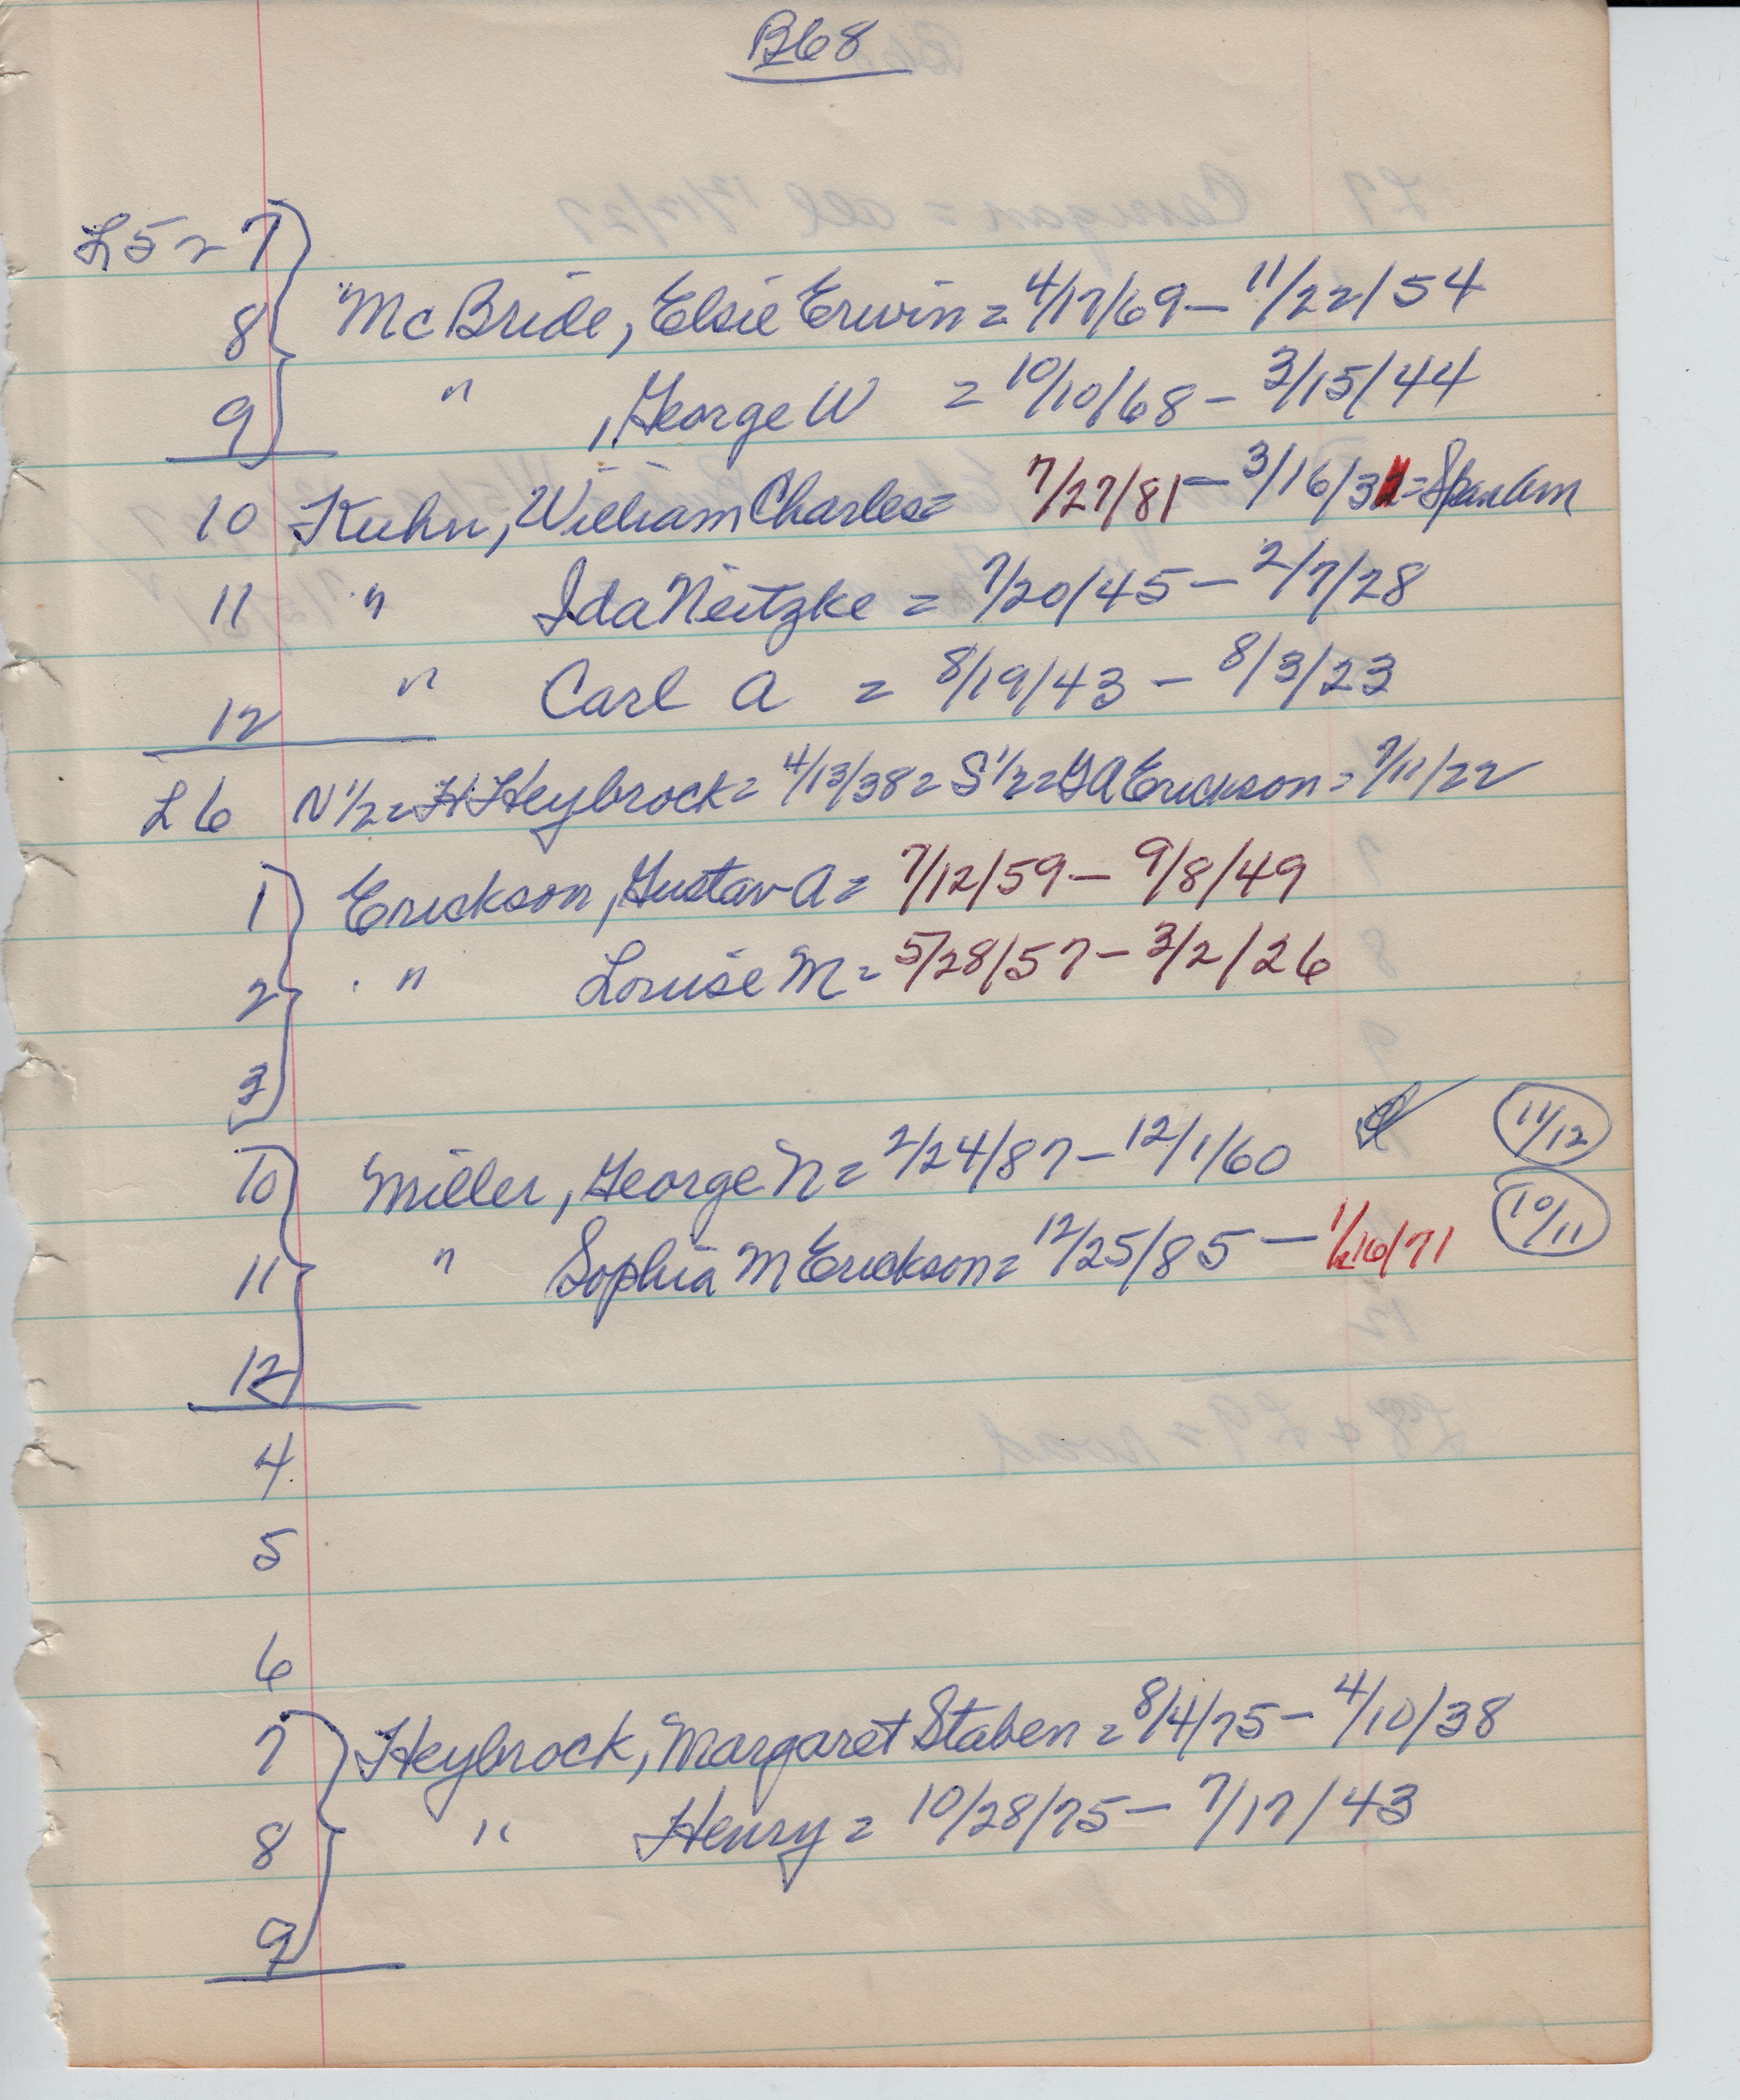 B68
L5 = 7
8 McBride, Elsie Erwin = 4/17/69 - 11/22/54
9 " , George W = 10/10/68 - 3/15/44
10 Kuhn, William Charles = 7/27/81 - 3/16/32 = Span Am
11 " Ida Neitzke = 7/20/45 - 2/7/28
12 " Carl A = 8/19/43 - 8/3/23
L6 N 1/2 = H Heybrock = 4/13/38 = S 1/2 = GA Erickson = 7/11/22
1 Erickson, Gustav A = 7/12/59 - 9/8/49
2 " Louise M = 5/28/57 - 3/2/26
3
10 Miller, George N = 2/24/87 - 12/1/60 11/12
11 " Sophia M Erickson = 12/25/85 - 10/11
12
4
5
6
7 Heybrock, Margaret Staben = 8/4/75 - 4/10/38
8 " Henry = 10/28/75 - 7/17/43
9